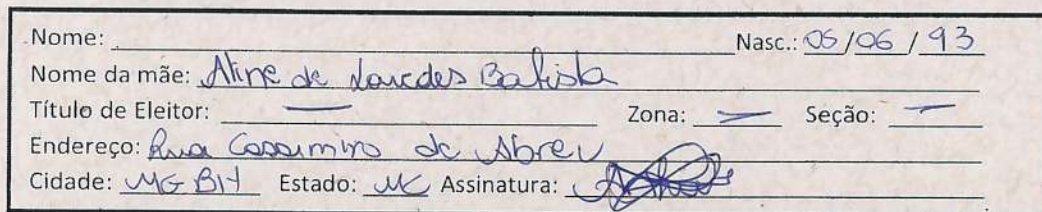 Nome: Nasc.: 05/06/93
Nome da mãe: Aline de Lourdes Batista
Título de Eleitor: — Zona: — Seção: —
Endereço: Rua Cassimiro de Abreu
Cidade: MG BH Estado: MG Assinatura: